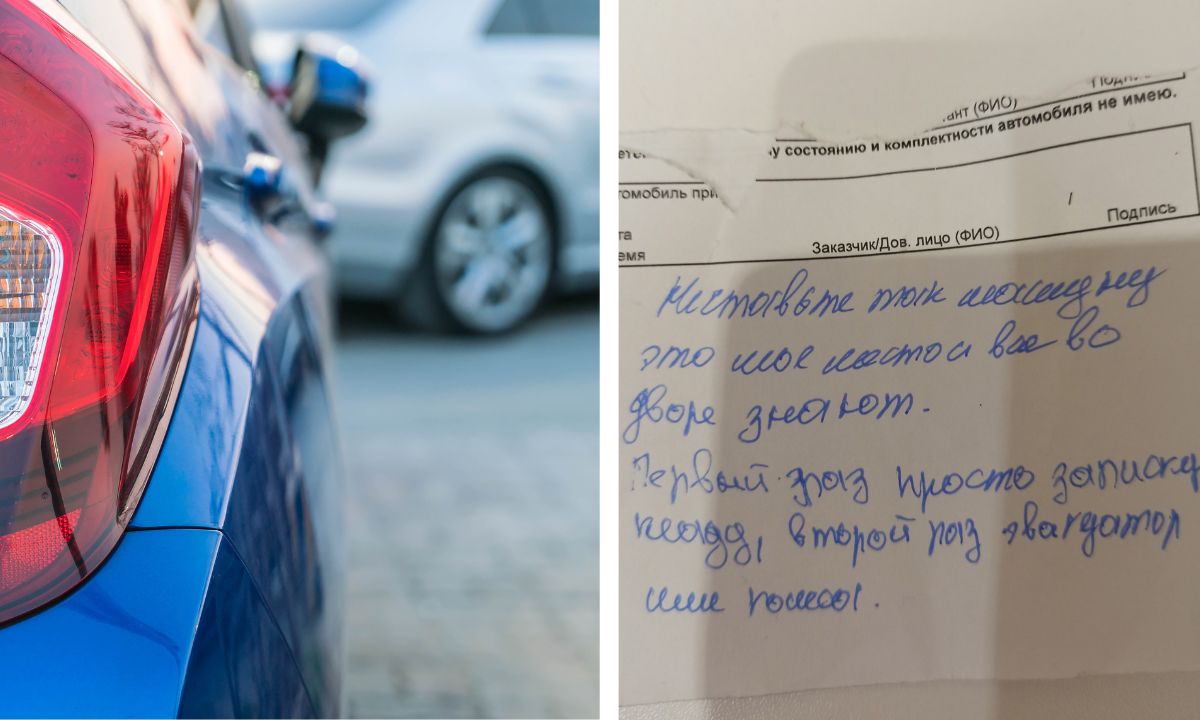 Подпи
ант (ФИО)
у состоянию и комплектности автомобиля не имею.
томобиль при
/
та
емя
Заказчик/Дов. лицо (ФИО)
Подпись
Не ставьте так машину
это мое место и все во
дворе знают.
Первый раз просто записку
кладу, второй раз эвакуатор
или